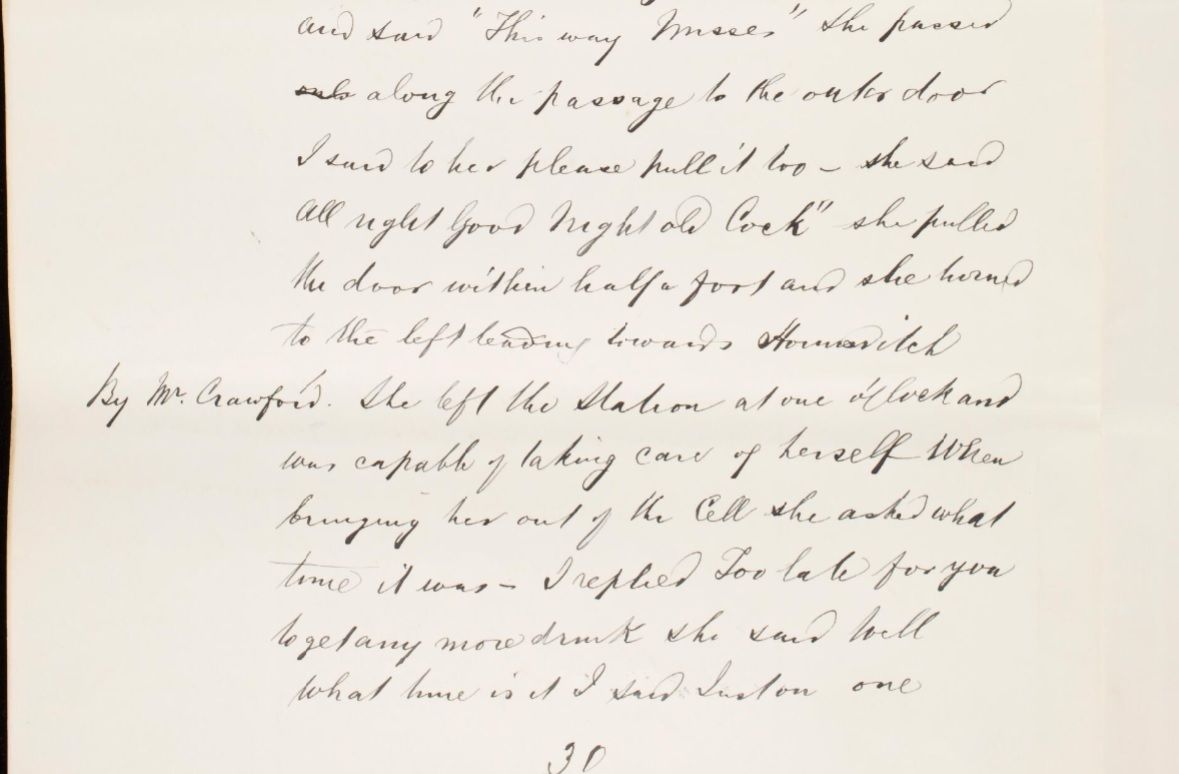 and said "This way Misses" she passed
out along the passage to the outer door
I said to her please pull it too - she said
All right Good Night old Cock" she pulled
the door within half a foot and she turned
to the left leading towards Houndsditch
By Mr. Crawford. She left the Station at one o'Clock and
was capable of taking care of herself When
bringing her out of the Cell she asked what
time it was - I replied Too late for you
to get any more drink she said Well
what time is it I said Just on one
30